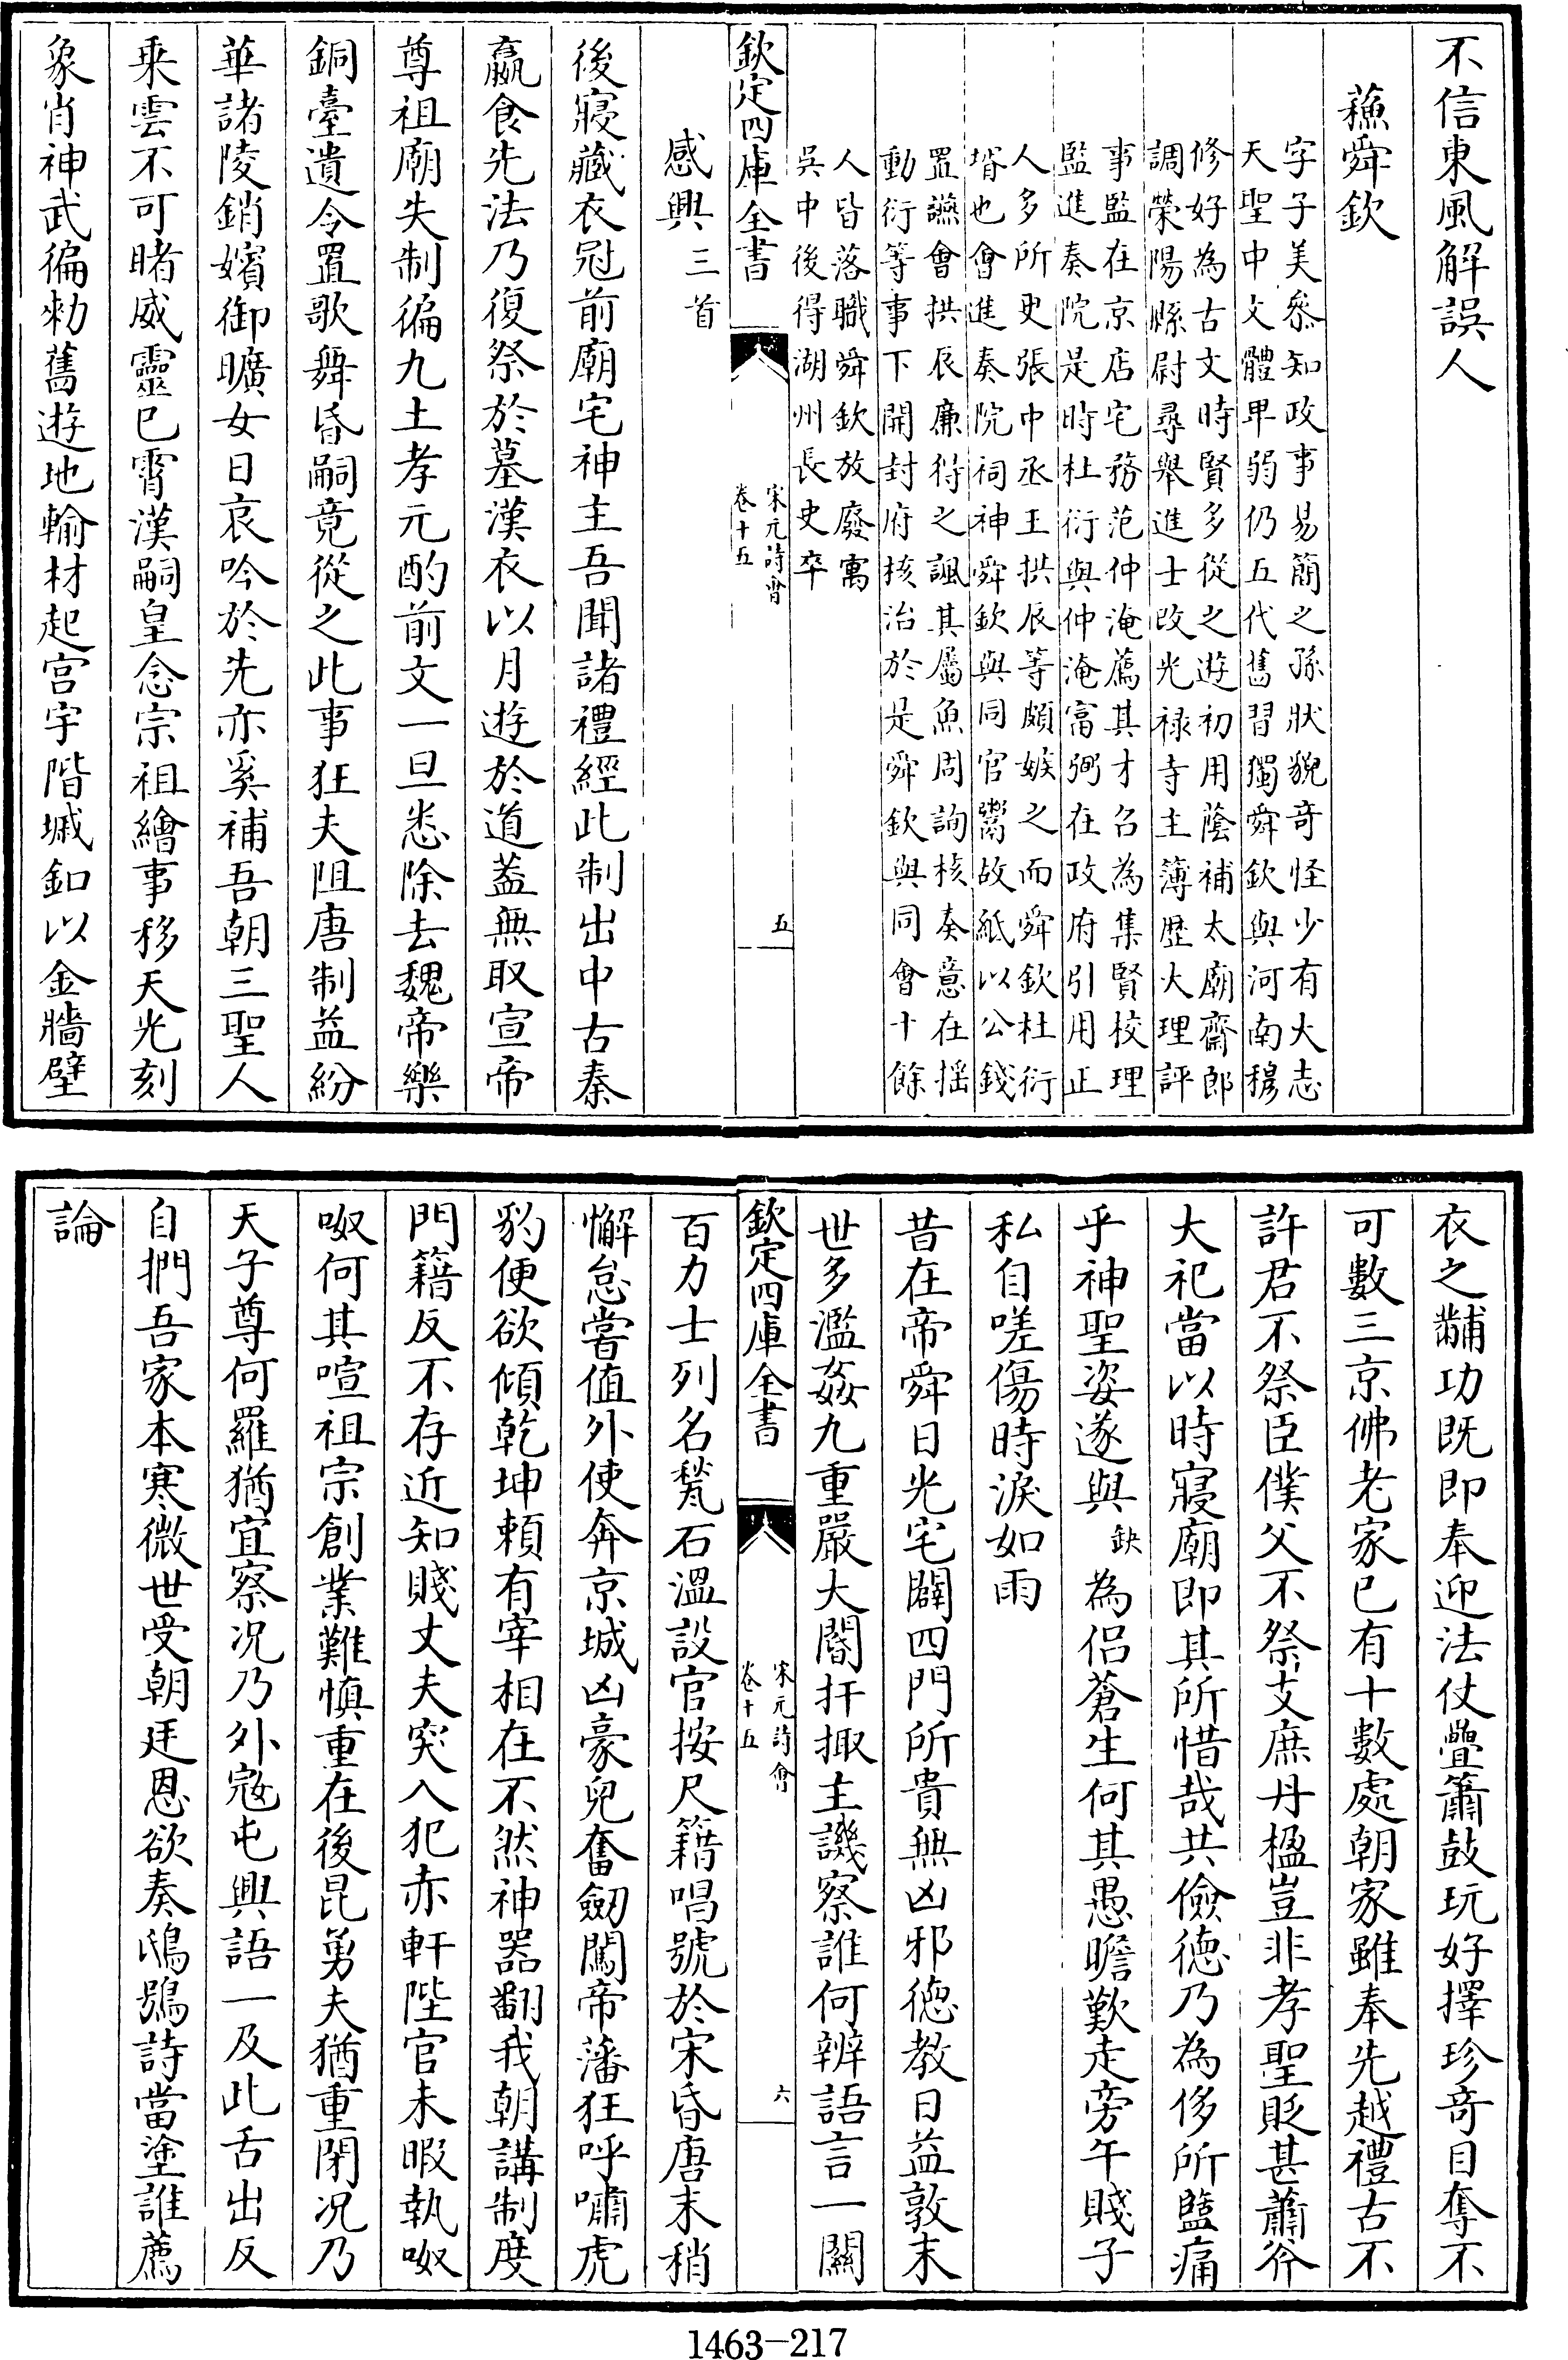 不信東風解誤人
蘓舜欽
字子美叅知政事易簡之孫狀貌竒怪少有大志
天聖中文體卑弱仍五代舊習獨舜欽與河南穆
修好為古文時賢多從之遊初用蔭補太廟齋郎
調榮陽縣尉尋舉進士改光禄寺主簿歴大理評
事監在京店宅務范仲淹薦其才召為集賢校理
監進奏院是時杜衍與仲淹富弼在政府引用正
人多所更張中丞王拱辰等頗嫉之而舜欽杜衍
壻也會進奏院祠神舜欽與同官鬻故紙以公錢
置讌會拱辰廉得之諷其屬魚周詢核奏意在揺
動衍等事下開封府核治於是舜欽與同會十餘
人皆落職舜欽放廢寓
吳中後得湖州長史卒
欽定四庫全書
宋元詩會
卷十五
五
感興三首
後寢藏衣冠前廟宅神主吾聞諸禮經此制出中古秦
嬴食先法乃復祭於墓漢衣以月遊於道葢無取宣帝
尊祖廟失制徧九土孝元酌前文一旦悉除去魏帝樂
銅臺遺令置歌舞昏嗣竟從之此事狂夫阻唐制益紛
華諸陵銷嬪御曠女日哀吟於先亦奚補吾朝三聖人
乗雲不可睹威靈已霄漢嗣皇念宗祖繪事移天光刻
象肖神武徧勑舊遊地輸材起宫宇階墄釦以金牆壁
衣之黼功既即奉迎法仗疊簫鼓玩好擇珍竒目奪不
可數三京佛老家已有十數處朝家雖奉先越禮古不
許君不祭臣僕父不祭支庶丹楹豈非孝聖貶甚蕭斧
大祀當以時寢廟即其所惜哉共儉徳乃為侈所盬痛
乎神聖姿遂與缺為侣蒼生何其愚瞻歎走旁午賤子
私自嗟傷時淚如雨
昔在帝舜日光宅闢四門所貴無凶邪徳教日益敦末
世多濫姦九重嚴大閽扞掫主譏察誰何辨語言一關
欽定四庫全書
宋元詩會
卷十五
六
百力士列名甃石溫設官按尺籍唱號於宋昏唐末稍
懈怠嘗值外使奔京城凶豪兒奮劒闖帝藩狂呼嘯虎
豹便欲傾乾坤頼有宰相在不然神器翻我朝講制度
門籍反不存近知賤丈夫突入犯赤軒陛官未暇執呶
呶何其喧祖宗創業難慎重在後昆勇夫猶重閉况乃
天子尊何羅猶宜察况乃外宼屯輿語一及此舌出反
自捫吾家本寒微世受朝廷恩欲奏鴟鴞詩當塗誰薦
論
1463-217